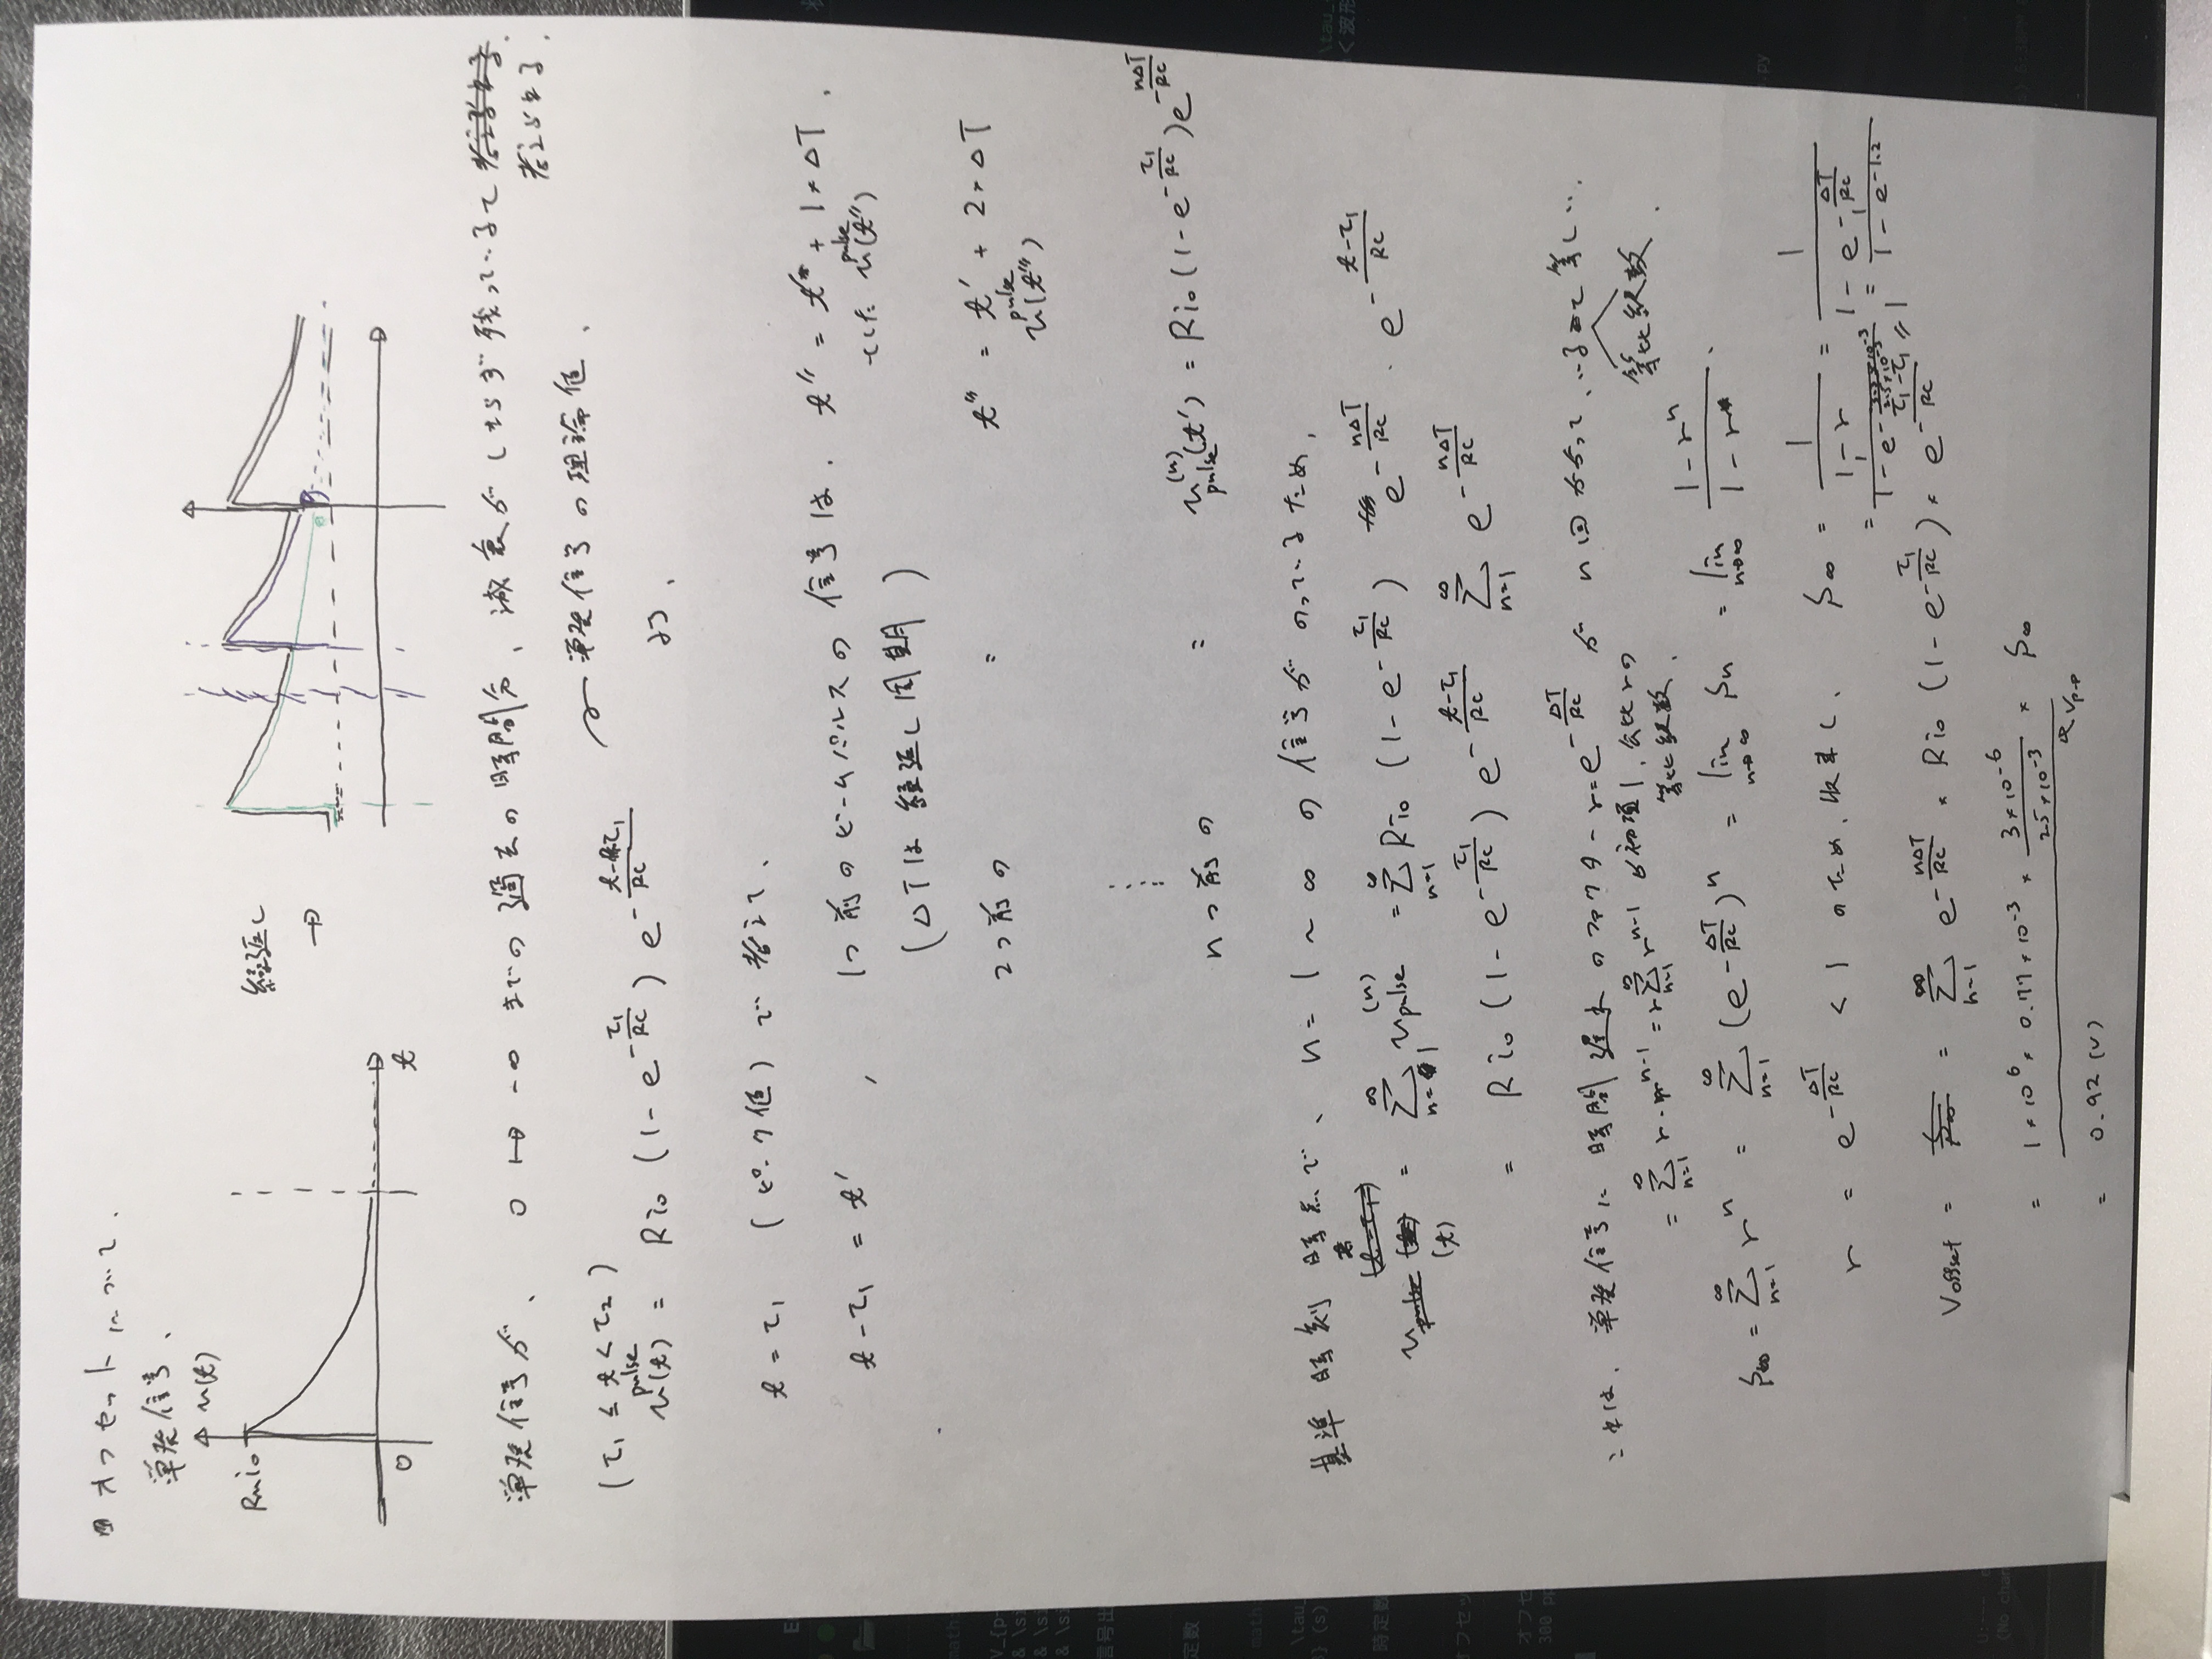 オフセットについて.
単発信号、
v(t)
Rmio
0
t
繰返し
→
単発信号が、 0 ↦ -∞ までの過去の時間分、減衰がしきらず残っていると
考えられる.
(τ₁ ≤ t < τ₂)
単発信号の理論値.
v^pulse(t) = Rio (1 - e^{-τ₁/RC}) e^{-(t-τ₁)/RC} より、
t = τ₁ (ピーク値) で考えて、
t - τ₁ = t' , 1つ前のビームパルスの信号は. t'' = t' + 1×ΔT,
とした v^pulse(t'')
(ΔTは繰返し周期)
2つ前の = t'' = t' + 2×ΔT
v^pulse(t'')
⋮
nつ前の = v^{(n)}_pulse(t') = Rio (1 - e^{-τ₁/RC}) e^{-nΔT/RC}
基準時刻時点で、 n = 1 ~ ∞ の信号がのっているため,
v(t) = Σ_{n=1}^∞ v^{(n)}_pulse = Σ_{n=1}^∞ Rio (1 - e^{-τ₁/RC}) e^{-nΔT/RC} · e^{-(t-τ₁)/RC}
= Rio (1 - e^{-τ₁/RC}) e^{-(t-τ₁)/RC} Σ_{n=1}^∞ e^{-nΔT/RC}
これは、単発信号に時間過去のファクター r = e^{-ΔT/RC} が n回かかっているのと等しい.
= Σ_{n=1}^∞ r · r^{n-1} = r Σ_{n=1}^∞ r^{n-1} 初項1, 公比rの
等比級数. 等比級数.
S∞ = Σ_{n=1}^∞ r^n = Σ_{n=1}^∞ (e^{-ΔT/RC})^n = lim_{n→∞} Sn = lim_{n→∞} (1 - r^n)/(1 - r).
r = e^{-ΔT/RC} < 1 のため、収束し、 S∞ = 1/(1 - r) = 1/(1 - e^{-ΔT/RC})
= 1/(1 - e^{-1.2})
Voffset = Σ_{n=1}^∞ e^{-nΔT/RC} × Rio (1 - e^{-τ₁/RC}) × e^{-(τ₁-τ₁)/RC} = 1
= 1×10⁶ × 0.77×10⁻³ × (3×10⁻⁶)/(2.5×10⁻³) × S∞
Vp-p
= 0.92 (V)